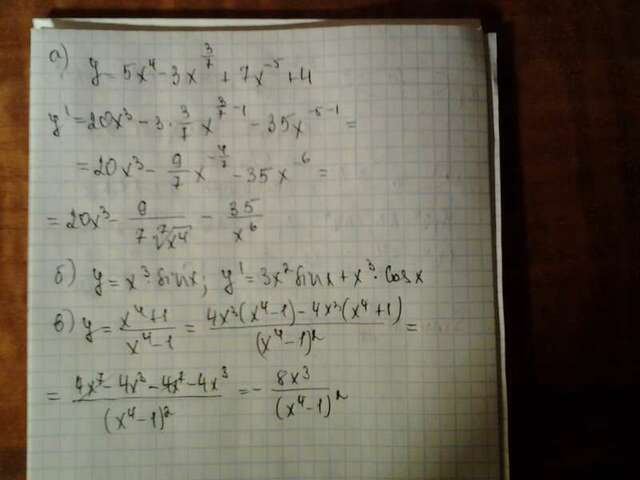 а) y = 5x⁴ - 3x^(3/7) + 7x⁻⁵ + 4
y' = 20x³ - 3 · 3/7 x^(3/7 - 1) - 35x^(-5-1) =
= 20x³ - 9/7 x^(-4/7) - 35x⁻⁶ =
= 20x³ - 9/(7 ⁷√x⁴) - 35/x⁶
б) y = x³ · sin x; y' = 3x² sin x + x³ · cos x
в) y = (x⁴+1)/(x⁴-1) = (4x³(x⁴-1) - 4x³(x⁴+1))/(x⁴-1)² =
= (4x⁷ - 4x³ - 4x⁷ - 4x³)/(x⁴-1)² = - 8x³/(x⁴-1)²